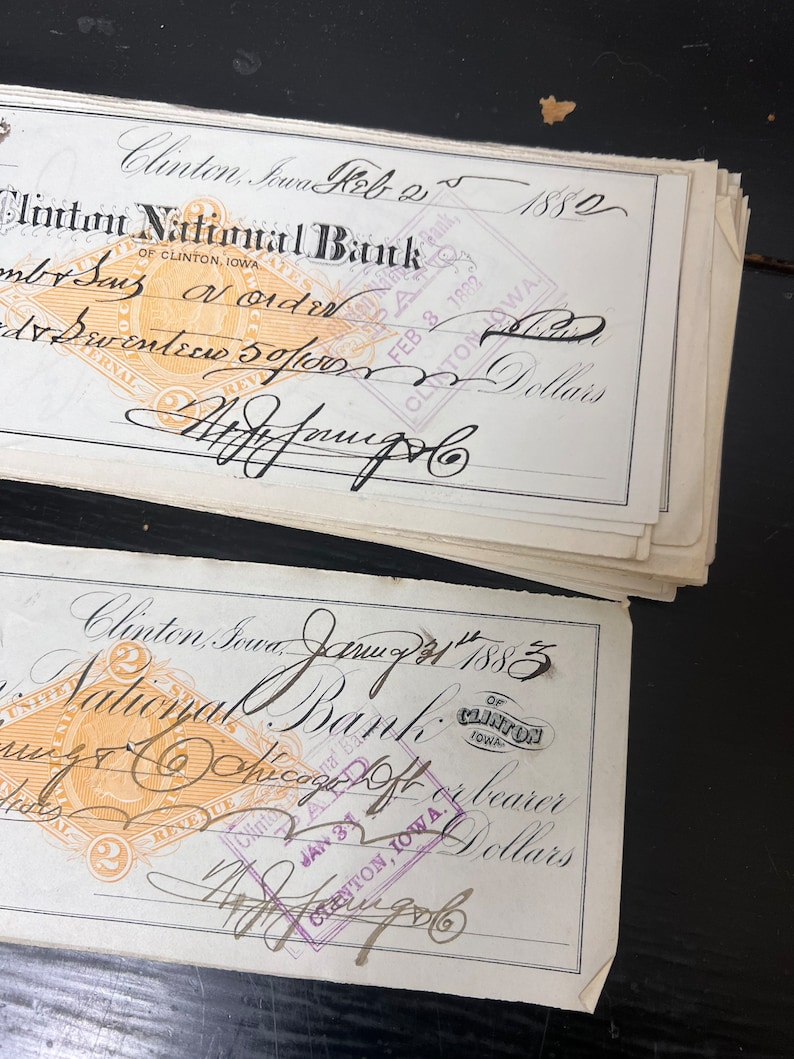 Clinton, Iowa Feb 2nd 1882
Clinton National Bank
OF CLINTON, IOWA
UNITED STATES
& Sons or order
& Seventeen 50/100 Dollars
2
INTERNAL REVENUE
2
Clinton National Bank,
PAID
FEB 3 1882
CLINTON, IOWA.
W. J. Young & Co
Clinton, Iowa, January 31st 1883
2
UNITED STATES
National Bank
OF
CLINTON
IOWA.
Young & Co Chicago Dft or bearer
Dollars
INTERNAL REVENUE
2
Clinton National Bank,
PAID
JAN 31
CLINTON, IOWA.
W. J. Young & Co